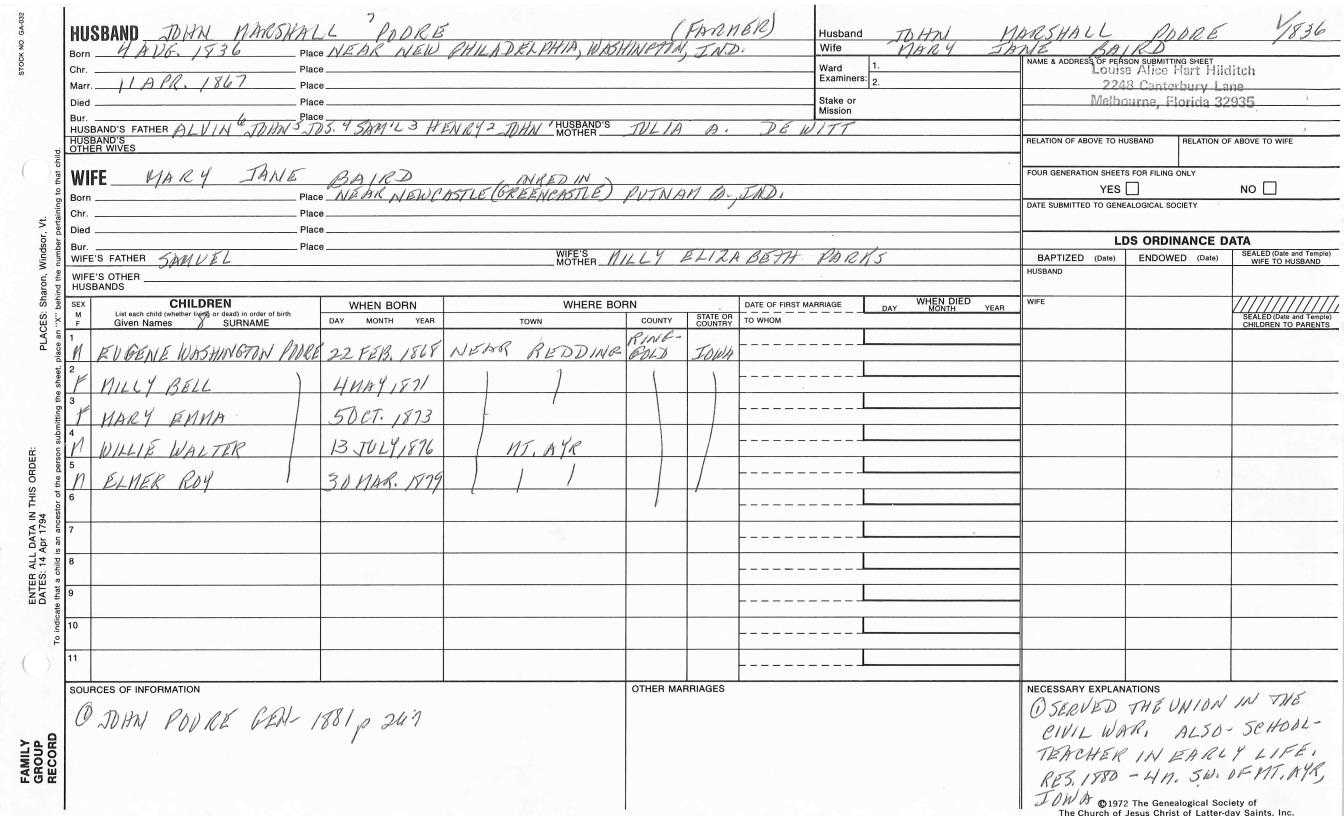 STOCK NO GA-032
HUSBAND JOHN MARSHALL 7 POORE (FARMER)
Born 4 AUG. 1836 Place NEAR NEW PHILADELPHIA, WASHINGTN, IND.
Chr. Place
Marr. 11 APR. 1867 Place
Died Place
Bur. Place
HUSBAND'S FATHER ALVIN 6 JOHN 5 JOS. 4 SAM'L 3 HENRY 2 JOHN 1 HUSBAND'S MOTHER JULIA A. DEWITT
HUSBAND'S OTHER WIVES
Husband JOHN MARSHALL POORE 1/836
Wife MARY JANE BAIRD
Ward Examiners: 1.
2.
Stake or Mission
NAME & ADDRESS OF PERSON SUBMITTING SHEET
Louise Alice Hart Hilditch
2248 Canterbury Lane
Melbourne, Florida 32935
RELATION OF ABOVE TO HUSBAND RELATION OF ABOVE TO WIFE
FOUR GENERATION SHEETS FOR FILING ONLY
YES NO
DATE SUBMITTED TO GENEALOGICAL SOCIETY
WIFE MARY JANE BAIRD
Born Place NEAR NEWCASTLE (GREENCASTLE) PUTNAM CO., IND.
Chr. Place
Died Place
Bur. Place
WIFE'S FATHER SAMUEL WIFE'S MOTHER MILLY ELIZABETH PARKS
WIFE'S OTHER HUSBANDS
LDS ORDINANCE DATA
BAPTIZED (Date) ENDOWED (Date) SEALED (Date and Temple) WIFE TO HUSBAND
HUSBAND
WIFE
SEALED (Date and Temple) CHILDREN TO PARENTS
SEX M F CHILDREN List each child (whether living or dead) in order of birth Given Names SURNAME WHEN BORN DAY MONTH YEAR WHERE BORN TOWN COUNTY STATE OR COUNTRY DATE OF FIRST MARRIAGE TO WHOM WHEN DIED DAY MONTH YEAR
1 M EUGENE WASHINGTON POORE 22 FEB. 1868 NEAR REDDING RING-GOLD IOWA
2 F MILLY BELL 4 MAY 1871
3 F MARY EMMA 5 OCT. 1873
4 M WILLIE WALTER 13 JULY 1876 MT. AYR
5 M ELMER ROY 30 MAR. 1879
6
7
8
9
10
11
SOURCES OF INFORMATION
① JOHN POORE GEN- 1881 p 267
OTHER MARRIAGES
NECESSARY EXPLANATIONS
① SERVED THE UNION IN THE
CIVIL WAR. ALSO - SCHOOL-
TEACHER IN EARLY LIFE.
RES. 1880 - 4 M. SW. OF MT. AYR,
IOWA
©1972 The Genealogical Society of
The Church of Jesus Christ of Latter-day Saints, Inc.
PLACES: Sharon, Windsor, Vt.
ENTER ALL DATA IN THIS ORDER:
DATES: 14 Apr 1794
To indicate that a child is an ancestor of the person submitting the sheet, place an "X" behind the number pertaining to that child.
FAMILY
GROUP
RECORD